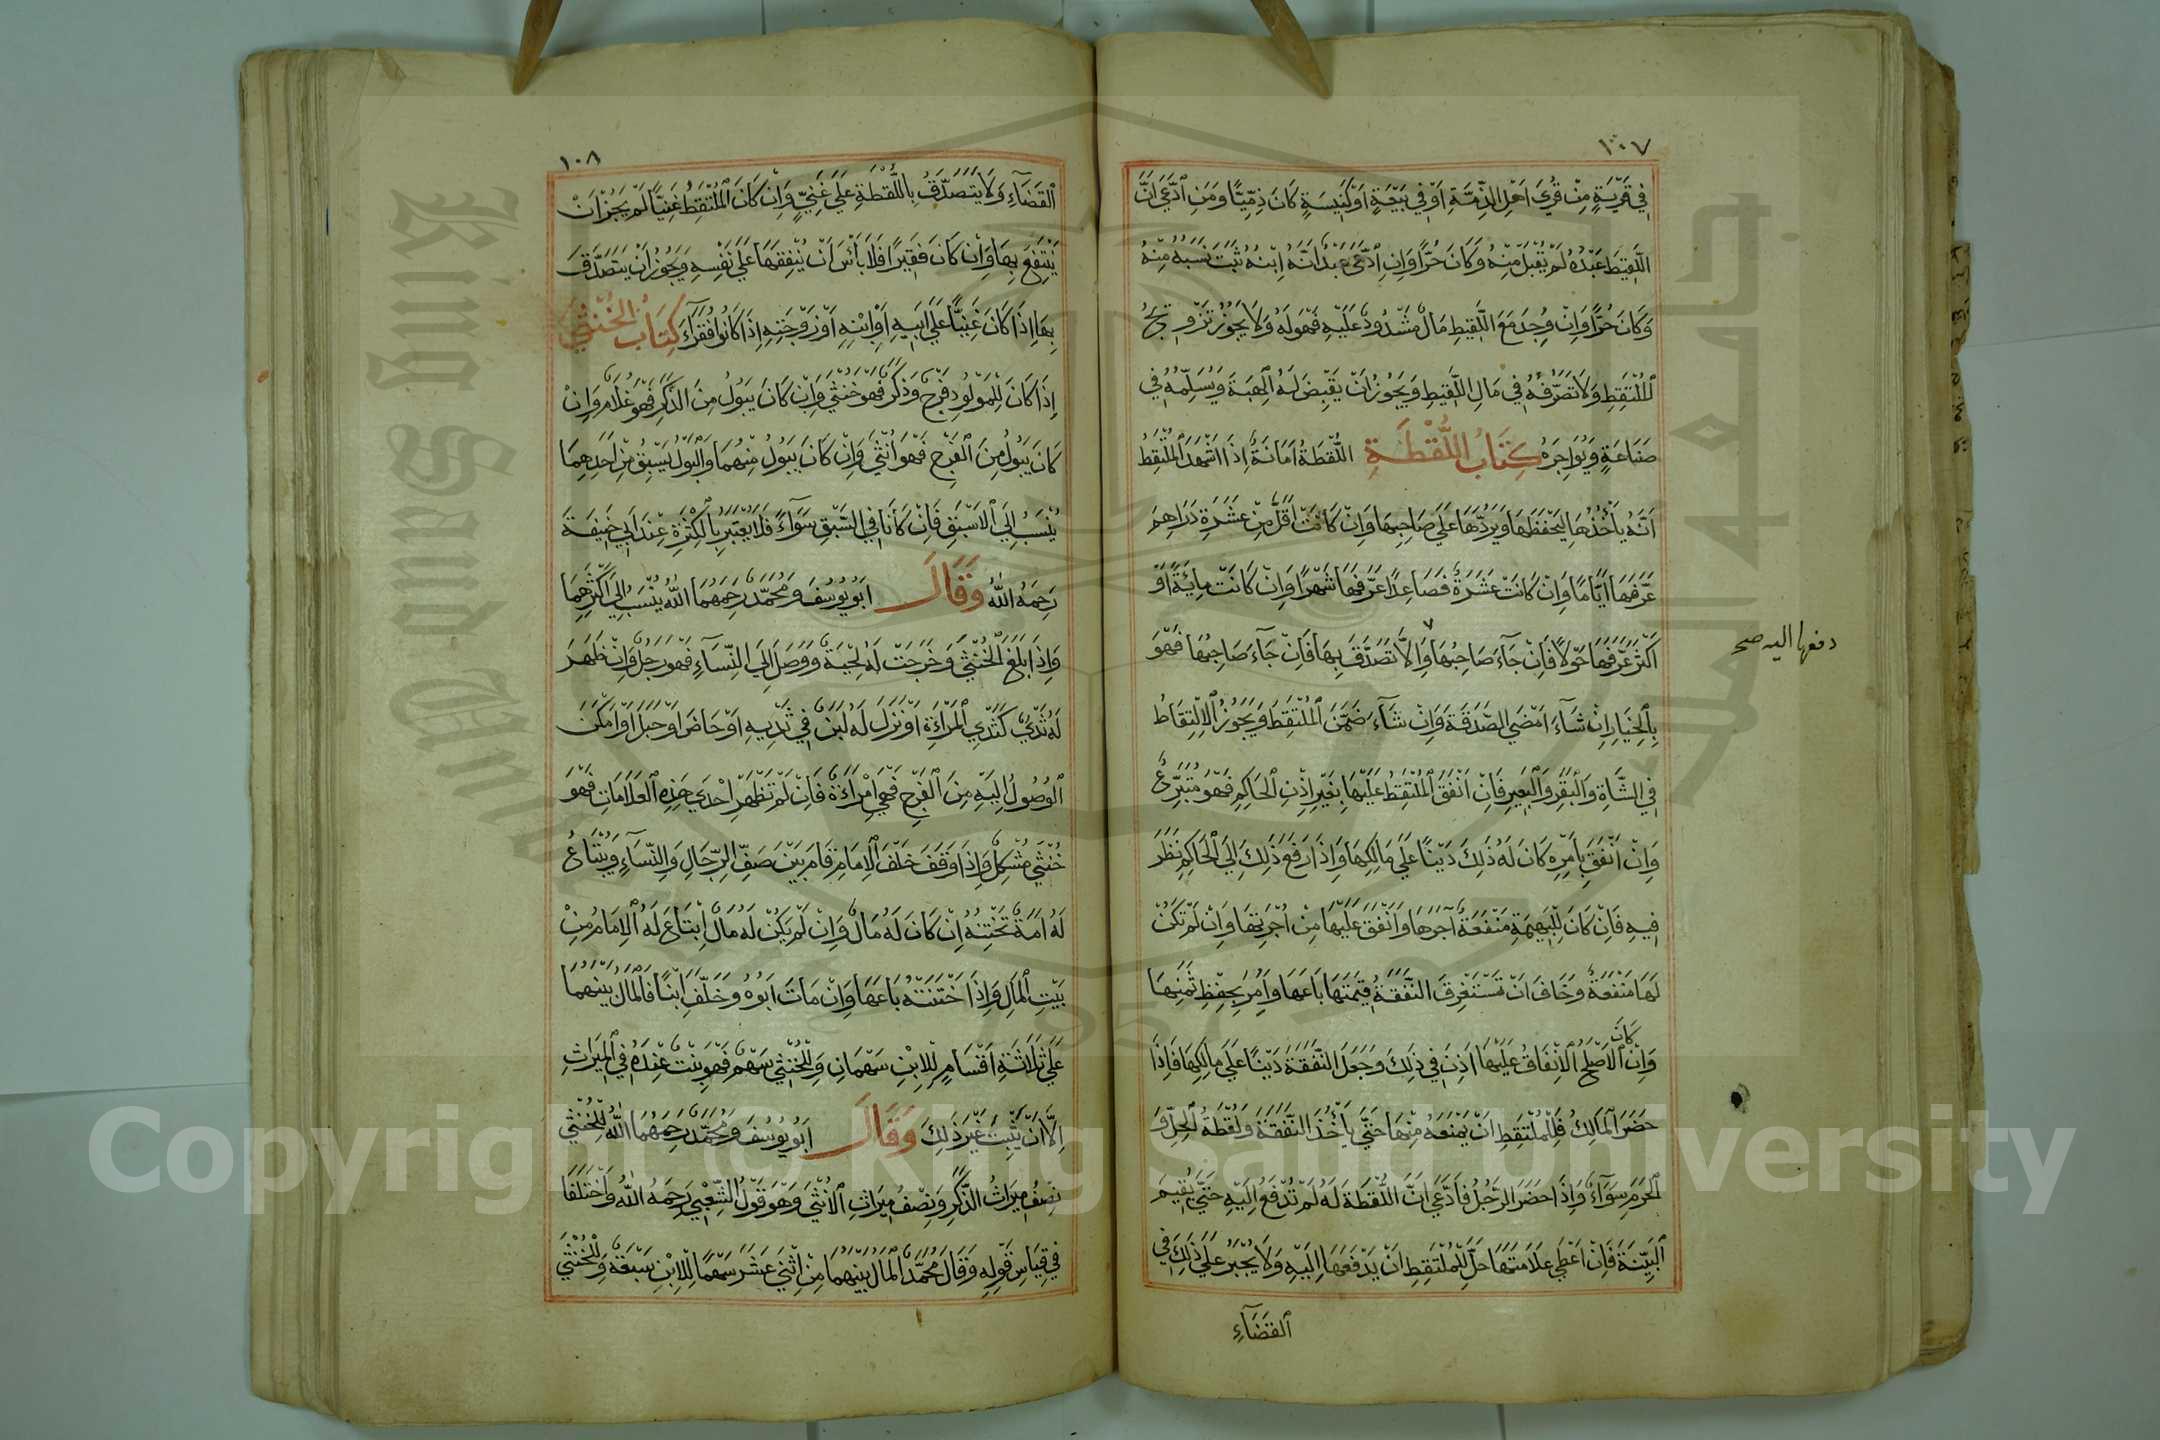 ١٠٧
فِي قَرْيَةٍ مِنْ قُرَى اَهْلِ الذِّمَّةِ اَوْ فِي بِيْعَةٍ اَوْ كَنِيسَةٍ كَانَ ذِمِّيًّا وَمَنِ ادَّعَى اَنَّ
اللَّقِيطَ عَبْدُهُ لَمْ يُقْبَلْ مِنْهُ وَكَانَ حُرًّا وَاِنِ ادَّعَى عَبْدٌ اَنَّهُ اِبْنُهُ ثَبَتَ نَسَبُهُ مِنْهُ
وَكَانَ حُرًّا وَاِنْ وُجِدَ مَعَ اللَّقِيطِ مَالٌ مَشْدُودٌ عَلَيْهِ فَهُوَ لَهُ وَلَا يَجُوزُ تَزْوِيجُ
الْمُلْتَقِطِ وَلَا تَصَرُّفُهُ فِي مَالِ اللَّقِيطِ وَيَجُوزُ اَنْ يَقْبِضَ لَهُ الْهِبَةَ وَيُسَلِّمُهُ فِي
صَنَاعَةٍ وَيُوَاجِرَهُ كِتَابُ اللُّقْطَةِ اللُّقَطَةُ اَمَانَةٌ اِذَا اَشْهَدَ الْمُلْتَقِطُ
اَنَّهُ يَأْخُذُهَا لِيَحْفَظَهَا وَيَرُدَّهَا عَلَى صَاحِبِهَا وَاِنْ كَانَتْ اَقَلَّ مِنْ عَشَرَةِ دَرَاهِمَ
عَرَّفَهَا اَيَّامًا وَاِنْ كَانَتْ عَشَرَةً فَصَاعِدًا عَرَّفَهَا شَهْرًا وَاِنْ كَانَتْ مِائَةً اَوْ
اَكْثَرَ عَرَّفَهَا حَوْلًا فَاِنْ جَآءَ صَاحِبُهَا وَاِلَّا تَصَدَّقَ بِهَا فَاِنْ جَآءَ صَاحِبُهَا فَهُوَ
دفعها اليه صح
بِالْخِيَارِ اِنْ شَآءَ اَمْضَى الصَّدَقَةَ وَاِنْ شَآءَ ضَمَّنَ الْمُلْتَقِطَ وَيَجُوزُ الْاِلْتِقَاطُ
فِي الشَّاةِ وَالْبَقَرِ وَالْبَعِيرِ فَاِنْ اَنْفَقَ الْمُلْتَقِطُ عَلَيْهَا بِغَيْرِ اِذْنِ الْحَاكِمِ فَهُوَ مُتَبَرِّعٌ
وَاِنْ اَنْفَقَ بِاَمْرِهِ كَانَ لَهُ ذٰلِكَ دَيْنًا عَلَى مَالِكِهَا وَاِذَا رُفِعَ ذٰلِكَ اِلَى الْحَاكِمِ نَظَرَ
فِيهِ فَاِنْ كَانَ لِلْبَهِيمَةِ مَنْفَعَةٌ آجَرَهَا وَاَنْفَقَ عَلَيْهَا مِنْ اُجْرَتِهَا وَاِنْ لَمْ تَكُنْ
لَهَا مَنْفَعَةٌ وَخَافَ اَنْ تَسْتَغْرِقَ النَّفَقَةُ قِيمَتَهَا بَاعَهَا وَاَمَرَ بِحِفْظِ ثَمَنِهَا
وَاِنْ كَانَ الْاَصْلَحُ الْاِنْفَاقَ عَلَيْهَا اَذِنَ فِي ذٰلِكَ وَجَعَلَ النَّفَقَةَ دَيْنًا عَلَى مَالِكِهَا فَاِذَا
حَضَرَ الْمَالِكُ فَلِلْمُلْتَقِطِ اَنْ يَمْنَعَهُ مِنْهَا حَتَّى يَأْخُذَ النَّفَقَةَ وَلُقَطَةُ الْحِلِّ وَ
الْحَرَمِ سَوَآءٌ وَاِذَا حَضَرَ الرَّجُلُ فَادَّعَى اَنَّ اللُّقَطَةَ لَهُ لَمْ تُدْفَعْ اِلَيْهِ حَتَّى يُقِيمَ
الْبَيِّنَةَ فَاِنْ اَعْطَى عَلَامَتَهَا حَلَّ لِلْمُلْتَقِطِ اَنْ يَدْفَعَهَا اِلَيْهِ وَلَا يُجْبَرُ عَلَى ذٰلِكَ فِي
الْقَضَآءِ
١٠٨
الْقَضَآءِ وَلَا يَتَصَدَّقُ بِاللُّقْطَةِ عَلَى غَنِيٍّ وَاِنْ كَانَ الْمُلْتَقِطُ غَنِيًّا لَمْ يَجُزْ اَنْ
يَنْتَفِعَ بِهَا وَاِنْ كَانَ فَقِيرًا فَلَا بَأْسَ اَنْ يُنْفِقَهَا عَلَى نَفْسِهِ وَيَجُوزُ اَنْ يَتَصَدَّقَ
بِهَا اِذَا كَانَ غَنِيًّا عَلَى اَبِيهِ اَوِ ابْنِهِ اَوْ زَوْجَتِهِ اِذَا كَانُوا فُقَرَآءَ كِتَابُ الْخُنْثَى
اِذَا كَانَ لِلْمَوْلُودِ فَرْجٌ وَذَكَرٌ فَهُوَ خُنْثَى وَاِنْ كَانَ يَبُولُ مِنَ الذَّكَرِ فَهُوَ غُلَامٌ وَاِنْ
كَانَ يَبُولُ مِنَ الْفَرْجِ فَهُوَ اُنْثَى وَاِنْ كَانَ يَبُولُ مِنْهُمَا وَالْبَوْلُ يَسْبِقُ مِنْ اَحَدِهِمَا
يُنْسَبُ اِلَى الْاَسْبَقِ فَاِنْ كَانَا فِي السَّبْقِ سَوَآءً فَلَا يُعْتَبَرُ بِالْكَثْرَةِ عِنْدَ اَبِي حَنِيفَةَ
رَحِمَهُ اللّٰهُ وَقَالَ اَبُو يُوسُفَ وَمُحَمَّدٌ رَحِمَهُمَا اللّٰهُ يُنْسَبُ اِلَى اَكْثَرِهِمَا
وَاِذَا بَلَغَ الْخُنْثَى وَخَرَجَتْ لَهُ لِحْيَةٌ وَوَصَلَ اِلَى النِّسَآءِ فَهُوَ رَجُلٌ وَاِنْ ظَهَرَ
لَهُ ثَدْيٌ كَثَدْيِ الْمَرْأَةِ اَوْ نَزَلَ لَهُ لَبَنٌ فِي ثَدْيِهِ اَوْ حَاضَ اَوْ حَبَلَ اَوْ اَمْكَنَ
الْوُصُولُ اِلَيْهِ مِنَ الْفَرْجِ فَهِيَ امْرَأَةٌ فَاِنْ لَمْ تَظْهَرْ اِحْدَى هٰذِهِ الْعَلَامَاتِ فَهُوَ
خُنْثَى مُشْكِلٌ وَاِذَا وَقَفَ خَلْفَ الْاِمَامِ قَامَ بَيْنَ صَفِّ الرِّجَالِ وَالنِّسَآءِ وَيُبْتَاعُ
لَهُ اَمَةٌ تَخْتِنُهُ اِنْ كَانَ لَهُ مَالٌ وَاِنْ لَمْ يَكُنْ لَهُ مَالٌ اِبْتَاعَ لَهُ الْاِمَامُ مِنْ
بَيْتِ الْمَالِ وَاِذَا خَتَنَتْهُ بَاعَهَا وَاِنْ مَاتَ اَبُوهُ وَخَلَّفَ ابْنًا فَالْمَالُ بَيْنَهُمَا
عَلَى ثَلَاثَةِ اَقْسَامٍ لِلْاِبْنِ سَهْمَانِ وَلِلْخُنْثَى سَهْمٌ فَهُوَ بِنْتٌ عِنْدَهُ فِي الْمِيرَاثِ
اِلَّا اَنْ يَثْبُتَ غَيْرُ ذٰلِكَ وَقَالَ اَبُو يُوسُفَ وَمُحَمَّدٌ رَحِمَهُمَا اللّٰهُ لِلْخُنْثَى
نِصْفُ مِيرَاثِ الذَّكَرِ وَنِصْفُ مِيرَاثِ الْاُنْثَى وَهُوَ قَوْلُ الشَّعْبِيِّ رَحِمَهُ اللّٰهُ وَاخْتَلَفَا
فِي قِيَاسِ قَوْلِهِ وَقَالَ مُحَمَّدٌ الْمَالُ بَيْنَهُمَا مِنْ اِثْنَيْ عَشَرَ سَهْمًا لِلْاِبْنِ سَبْعَةٌ وَلِلْخُنْثَى
King Saud University
Copyright © King Saud University